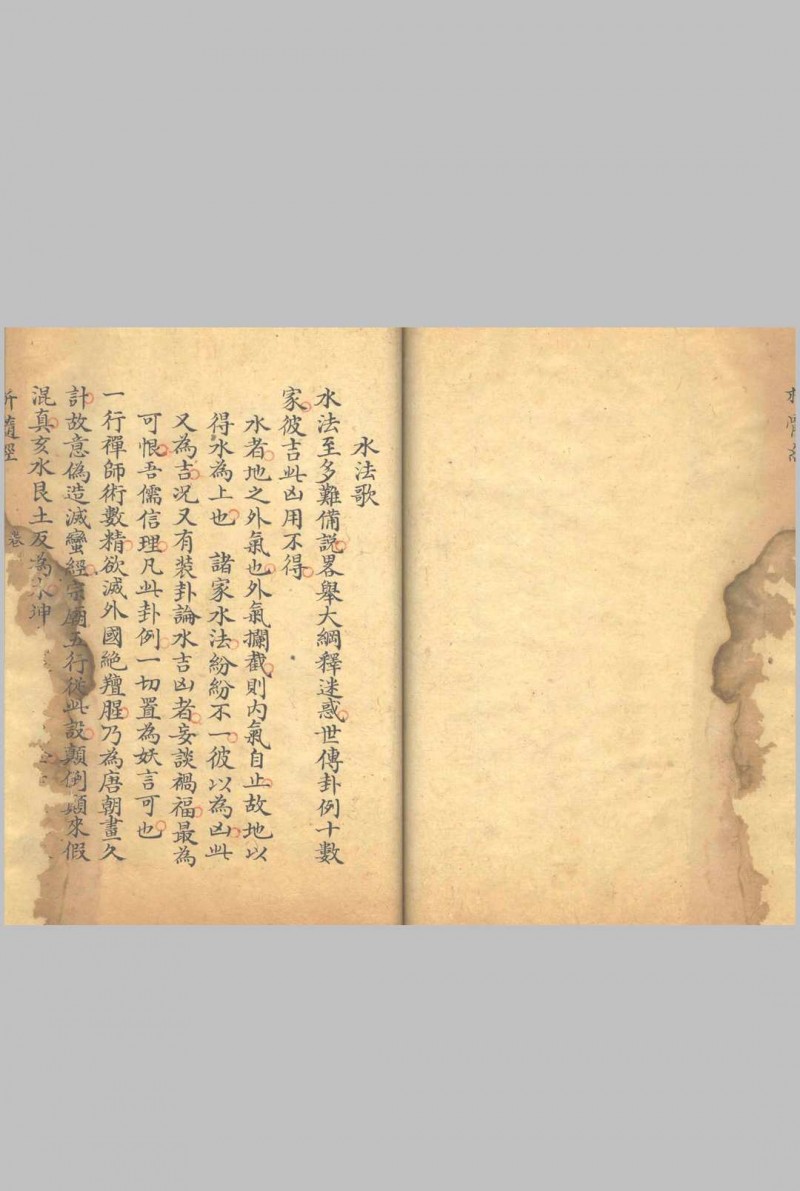 水法歌
水法至多難備説畧舉大綱釋迷惑世傳卦例十數
家彼吉此凶用不得
水者地之外氣也外氣攔截則内氣自止故地以
得水為上也 諸家水法紛紛不一彼以為凶此
又為吉况又有装卦論水吉凶者妄談禍福最為
可恨吾儒信理凡此卦例一切置為妖言可也
一行禪師術數精欲滅外國絶羶腥乃為唐朝畫久
計故意偽造滅蠻經宗廟五行從此設顛倒顛來假
混真亥水艮土反為木坤
卷